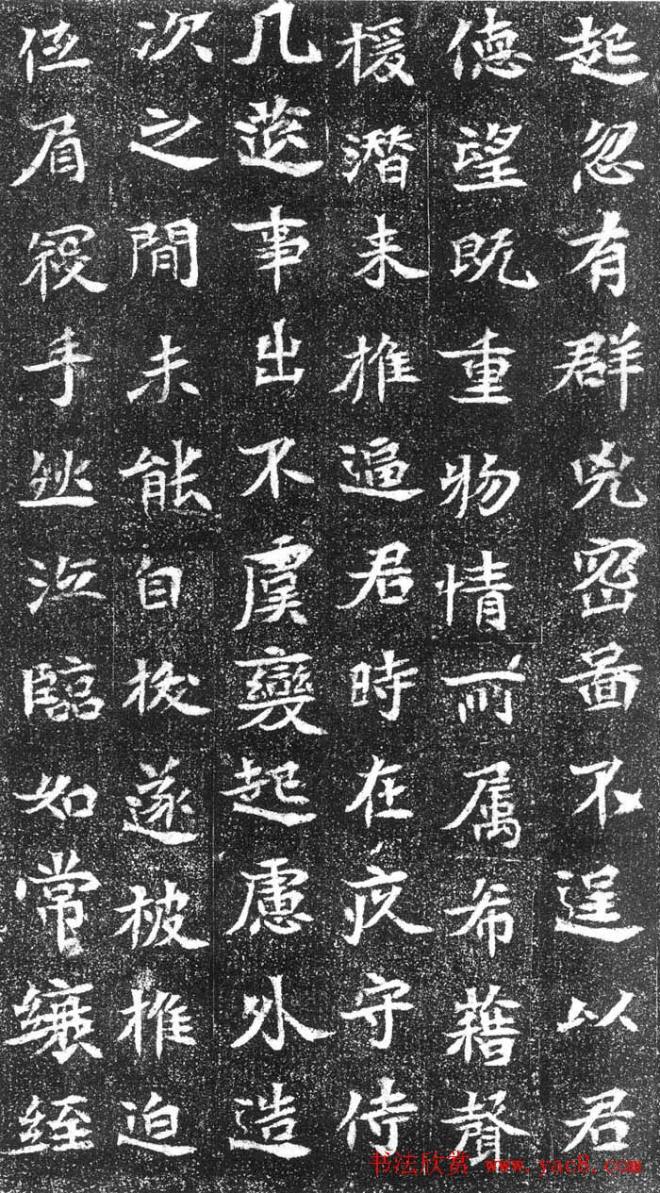 起忽有群兇密啚不逞以君
德望既重物情而属希藉聲
援潜来推逼君時在疚守侍
几筵事出不虞變起慮外造
次之間未能自拔遂被推迫
眉手臨如常縗絰
书法欣赏 www.yac8.com